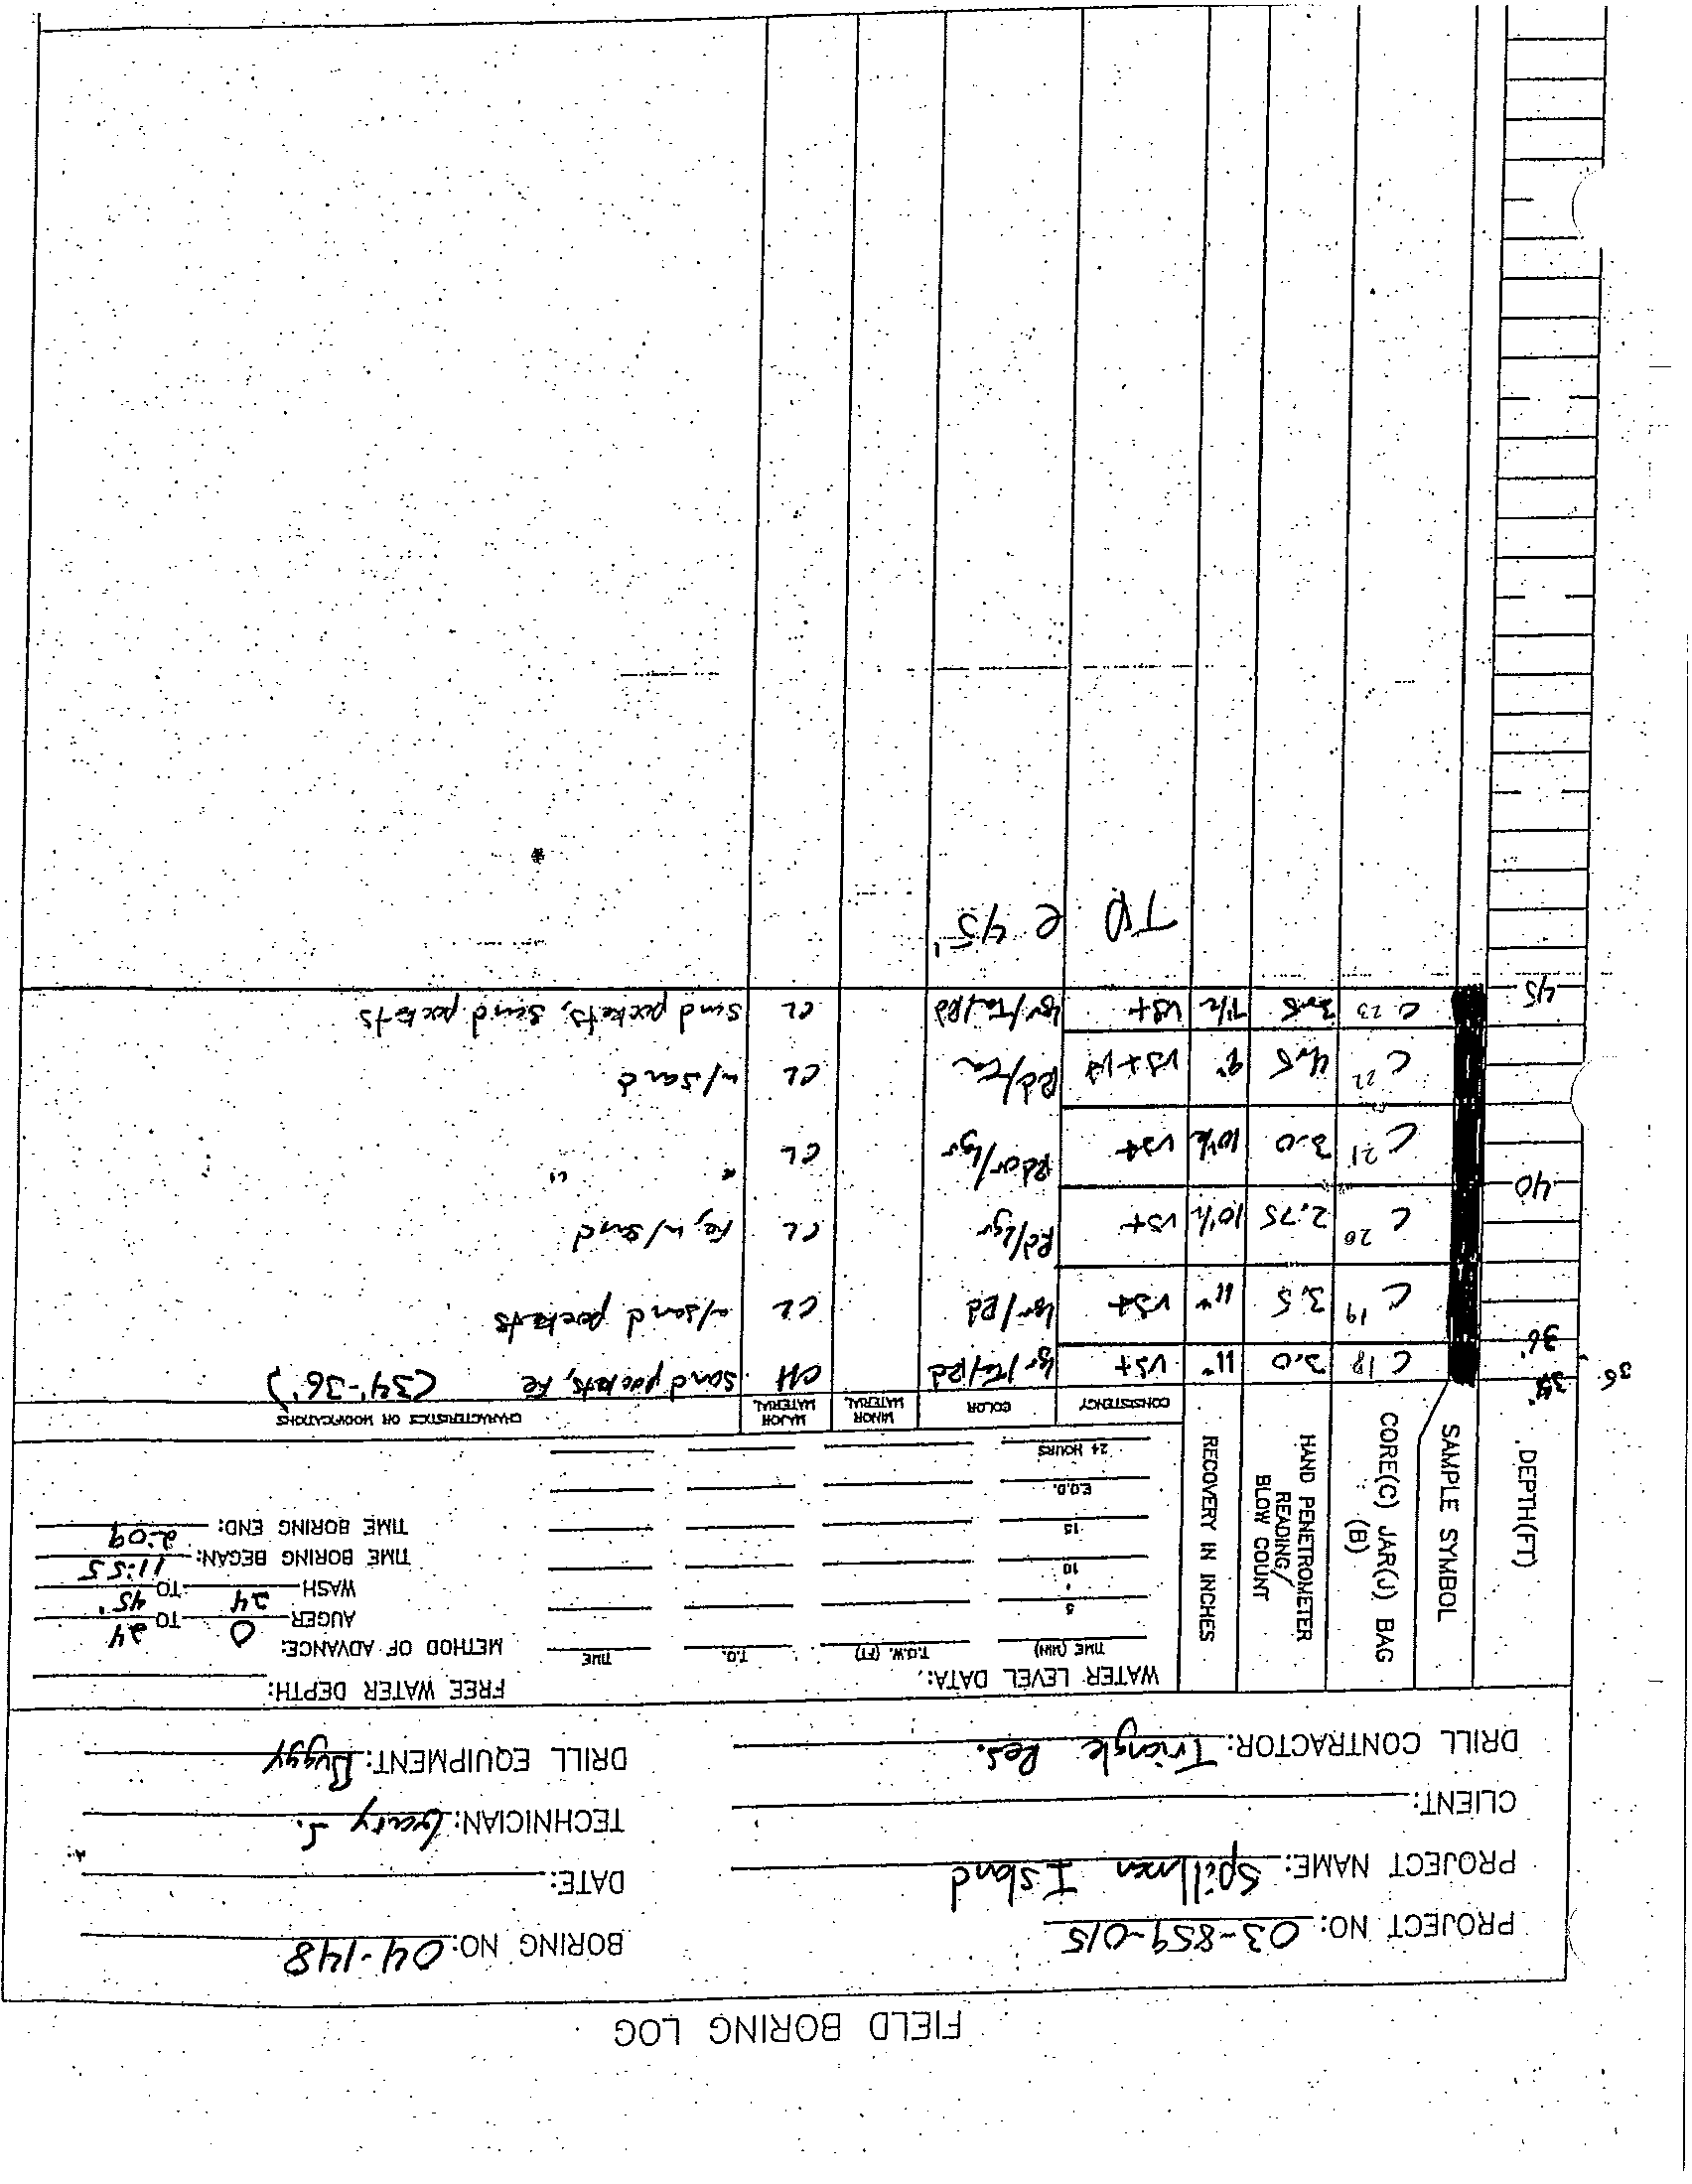 FIELD BORING LOG
PROJECT NO: 03-859-015 BORING NO: 04-148
PROJECT NAME: Spillman Island DATE:
CLIENT: TECHNICIAN: Gary S.
DRILL CONTRACTOR: Triangle Res. DRILL EQUIPMENT: Buggy
DEPTH(FT)
SAMPLE SYMBOL
CORE(C) JAR(J) BAG
(B)
HAND PENETROMETER
READING/
BLOW COUNT
RECOVERY IN INCHES
WATER LEVEL DATA: FREE WATER DEPTH:
TIME (MIN) T.O.W. (FT) T.O. TIME METHOD OF ADVANCE:
5 AUGER 0 TO 24
10 WASH 24 TO 45'
15 TIME BORING BEGAN: 11:55
E.O.D. TIME BORING END: 2:09
24 HOURS
CONSISTENCY COLOR MINOR MATERIAL MAJOR MATERIAL CHARACTERISTICS OR MODIFICATIONS
C 18 3.0 11" VSt lgr/Ta/Rd CH sand pockets, Fe (34'-36')
36'
C 19 3.5 11" VSt lgr/Rd CL w/sand pockets
C 20 2.75 10½ VSt Rd/lgr CL Fe, w/sand
40
C 21 3.0 10½ VSt Rdor/lgr CL " "
C 22 4.5 9" VSt Rd/Ta CL w/sand
C 23 7½ VSt lgr/Ta/Rd CL sand pockets, sand pockets
45
TD @ 45'